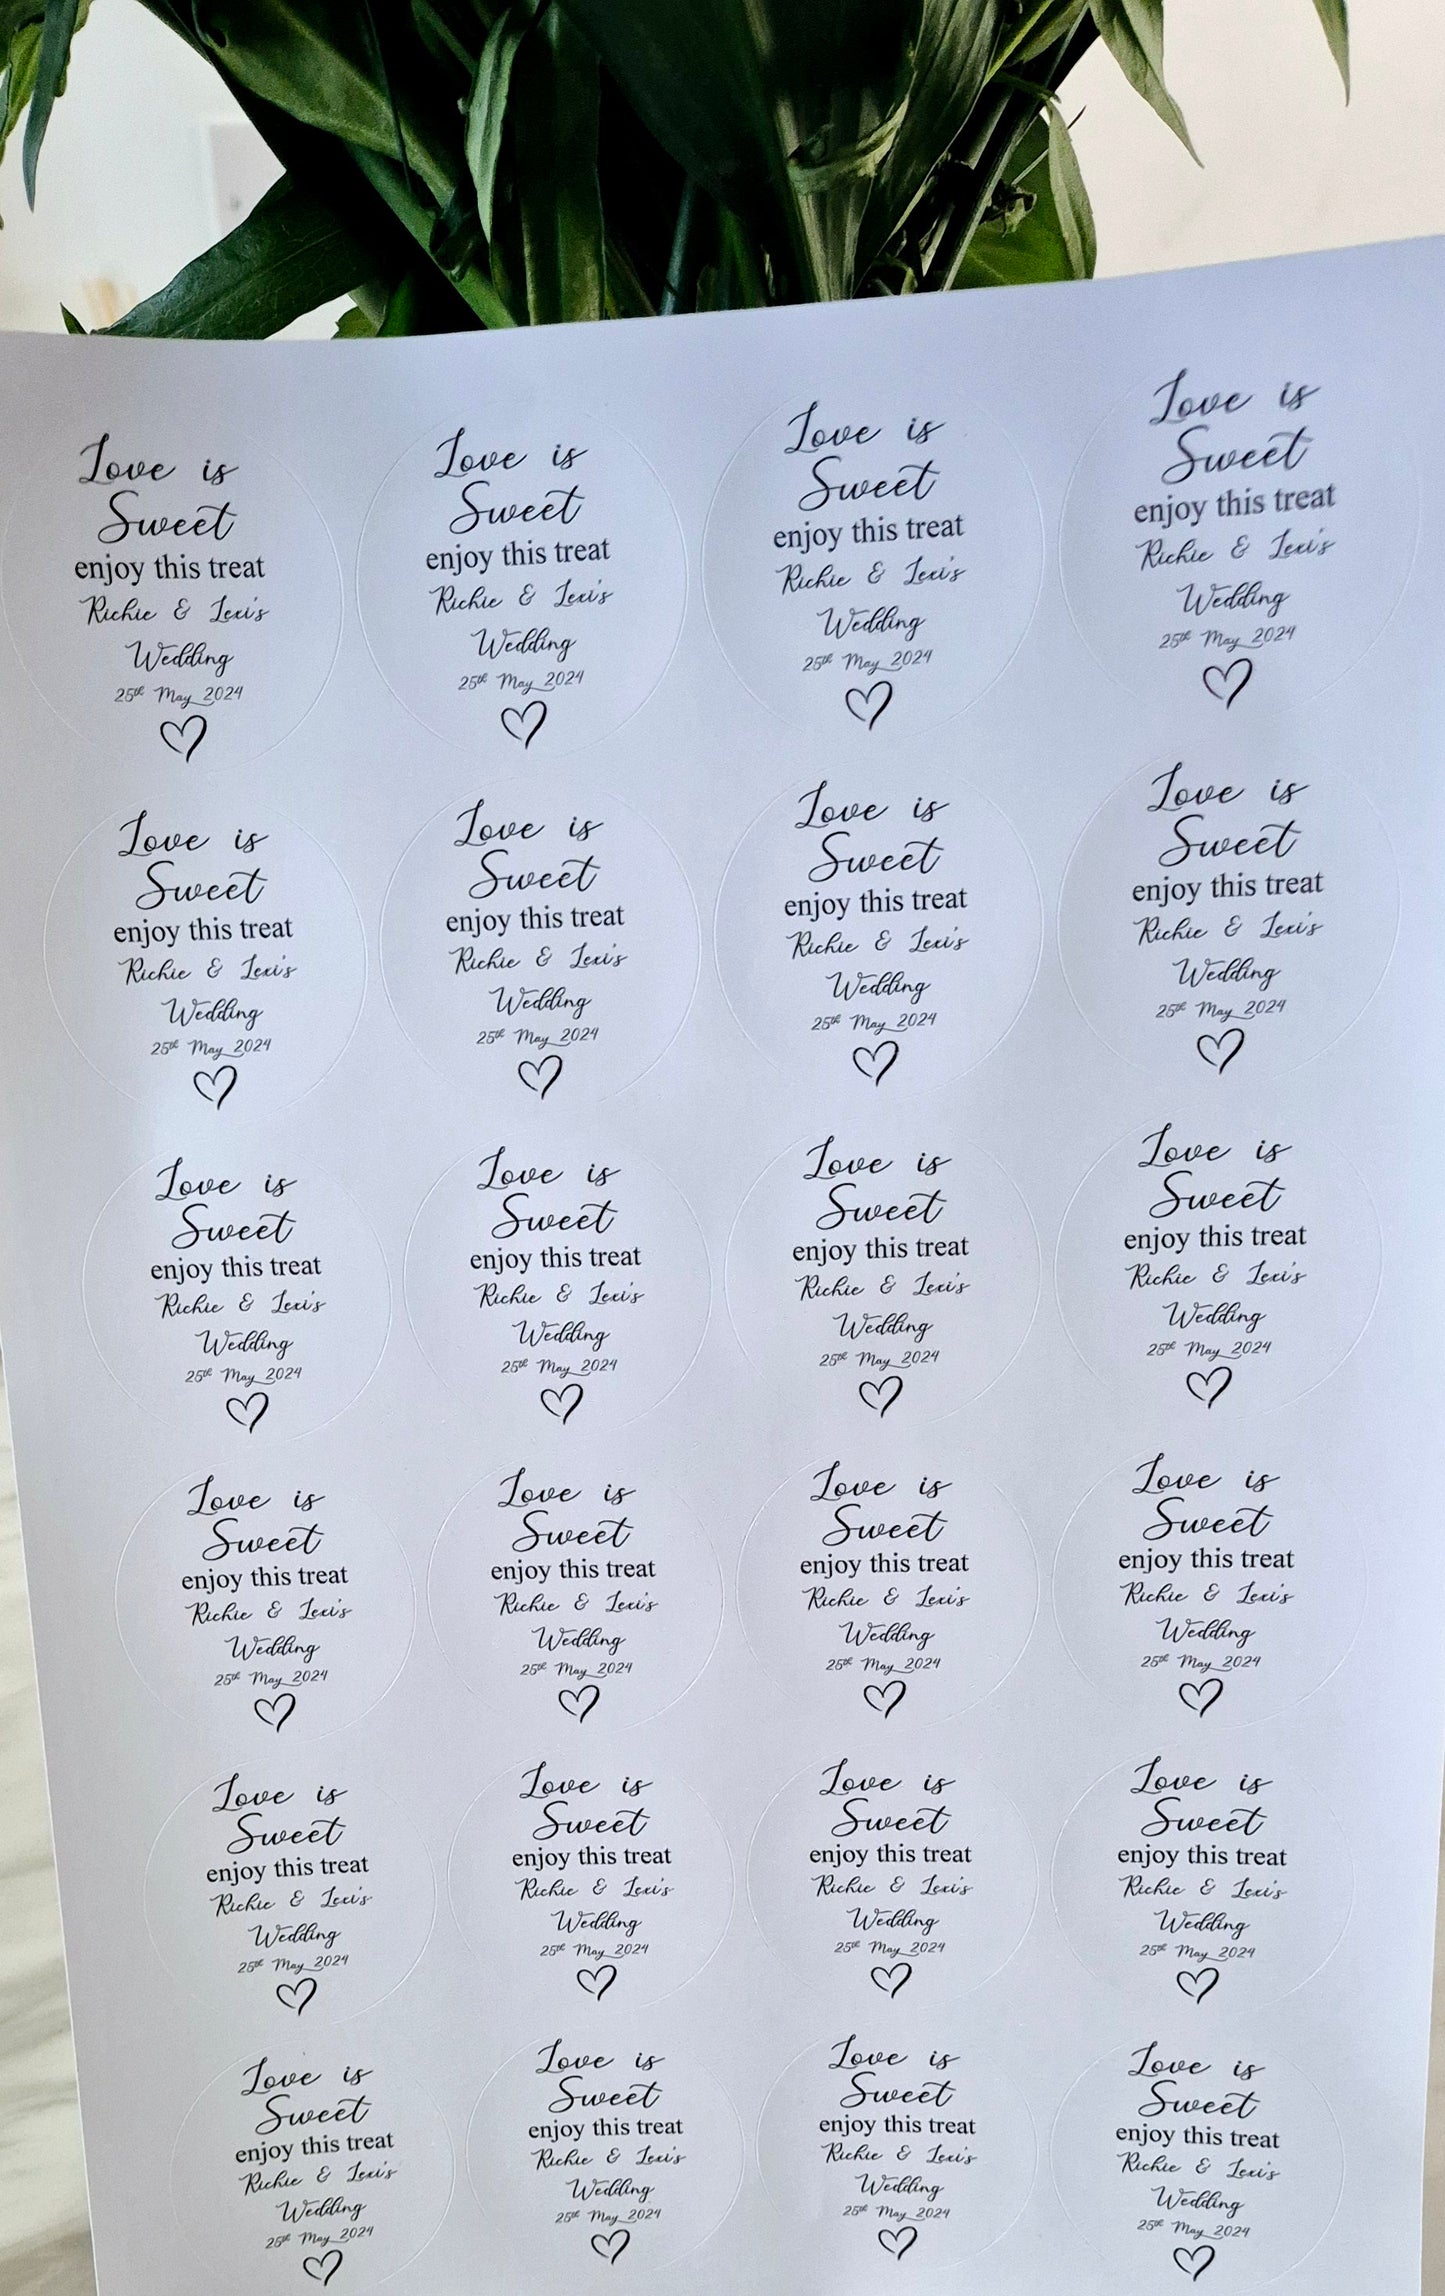 Love is
Sweet
enjoy this treat
Richie & Lexi's
Wedding
25th May 2024
Love is
Sweet
enjoy this treat
Richie & Lexi's
Wedding
25th May 2024
Love is
Sweet
enjoy this treat
Richie & Lexi's
Wedding
25th May 2024
Love is
Sweet
enjoy this treat
Richie & Lexi's
Wedding
25th May 2024
Love is
Sweet
enjoy this treat
Richie & Lexi's
Wedding
25th May 2024
Love is
Sweet
enjoy this treat
Richie & Lexi's
Wedding
25th May 2024
Love is
Sweet
enjoy this treat
Richie & Lexi's
Wedding
25th May 2024
Love is
Sweet
enjoy this treat
Richie & Lexi's
Wedding
25th May 2024
Love is
Sweet
enjoy this treat
Richie & Lexi's
Wedding
25th May 2024
Love is
Sweet
enjoy this treat
Richie & Lexi's
Wedding
25th May 2024
Love is
Sweet
enjoy this treat
Richie & Lexi's
Wedding
25th May 2024
Love is
Sweet
enjoy this treat
Richie & Lexi's
Wedding
25th May 2024
Love is
Sweet
enjoy this treat
Richie & Lexi's
Wedding
25th May 2024
Love is
Sweet
enjoy this treat
Richie & Lexi's
Wedding
25th May 2024
Love is
Sweet
enjoy this treat
Richie & Lexi's
Wedding
25th May 2024
Love is
Sweet
enjoy this treat
Richie & Lexi's
Wedding
25th May 2024
Love is
Sweet
enjoy this treat
Richie & Lexi's
Wedding
25th May 2024
Love is
Sweet
enjoy this treat
Richie & Lexi's
Wedding
25th May 2024
Love is
Sweet
enjoy this treat
Richie & Lexi's
Wedding
25th May 2024
Love is
Sweet
enjoy this treat
Richie & Lexi's
Wedding
25th May 2024
Love is
Sweet
enjoy this treat
Richie & Lexi's
Wedding
25th May 2024
Love is
Sweet
enjoy this treat
Richie & Lexi's
Wedding
25th May 2024
Love is
Sweet
enjoy this treat
Richie & Lexi's
Wedding
25th May 2024
Love is
Sweet
enjoy this treat
Richie & Lexi's
Wedding
25th May 2024